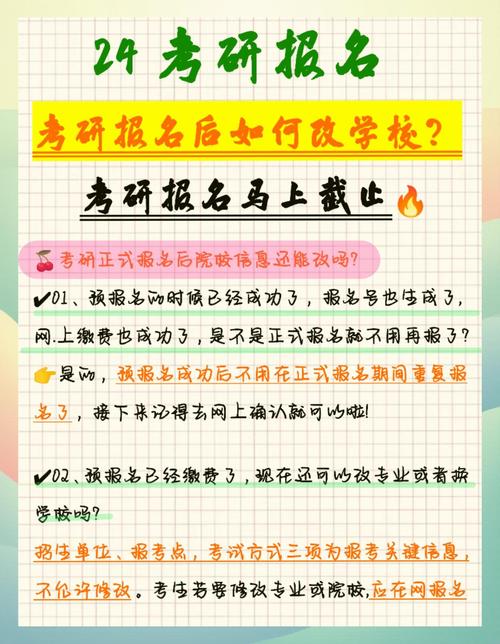 24考研报名
考研报名后如何改学校?
考研报名马上截止
考研正式报名后院校信息还能改吗?
✔01、预报名的时候已经成功了,报名号也生成了,
网上缴费也成功了,是不是正式报名就不用再报了?
是的,预报名成功后不用在正式报名期间重复报
名了,接下来记得去网上确认就可以啦!
✔02、预报名已经缴费了,现在还可以改专业或者换
学校吗?
招生单位、报考点,考试方式三项为报考关键信息,
不允许修改。考生若要修改专业或院校,应在网报名